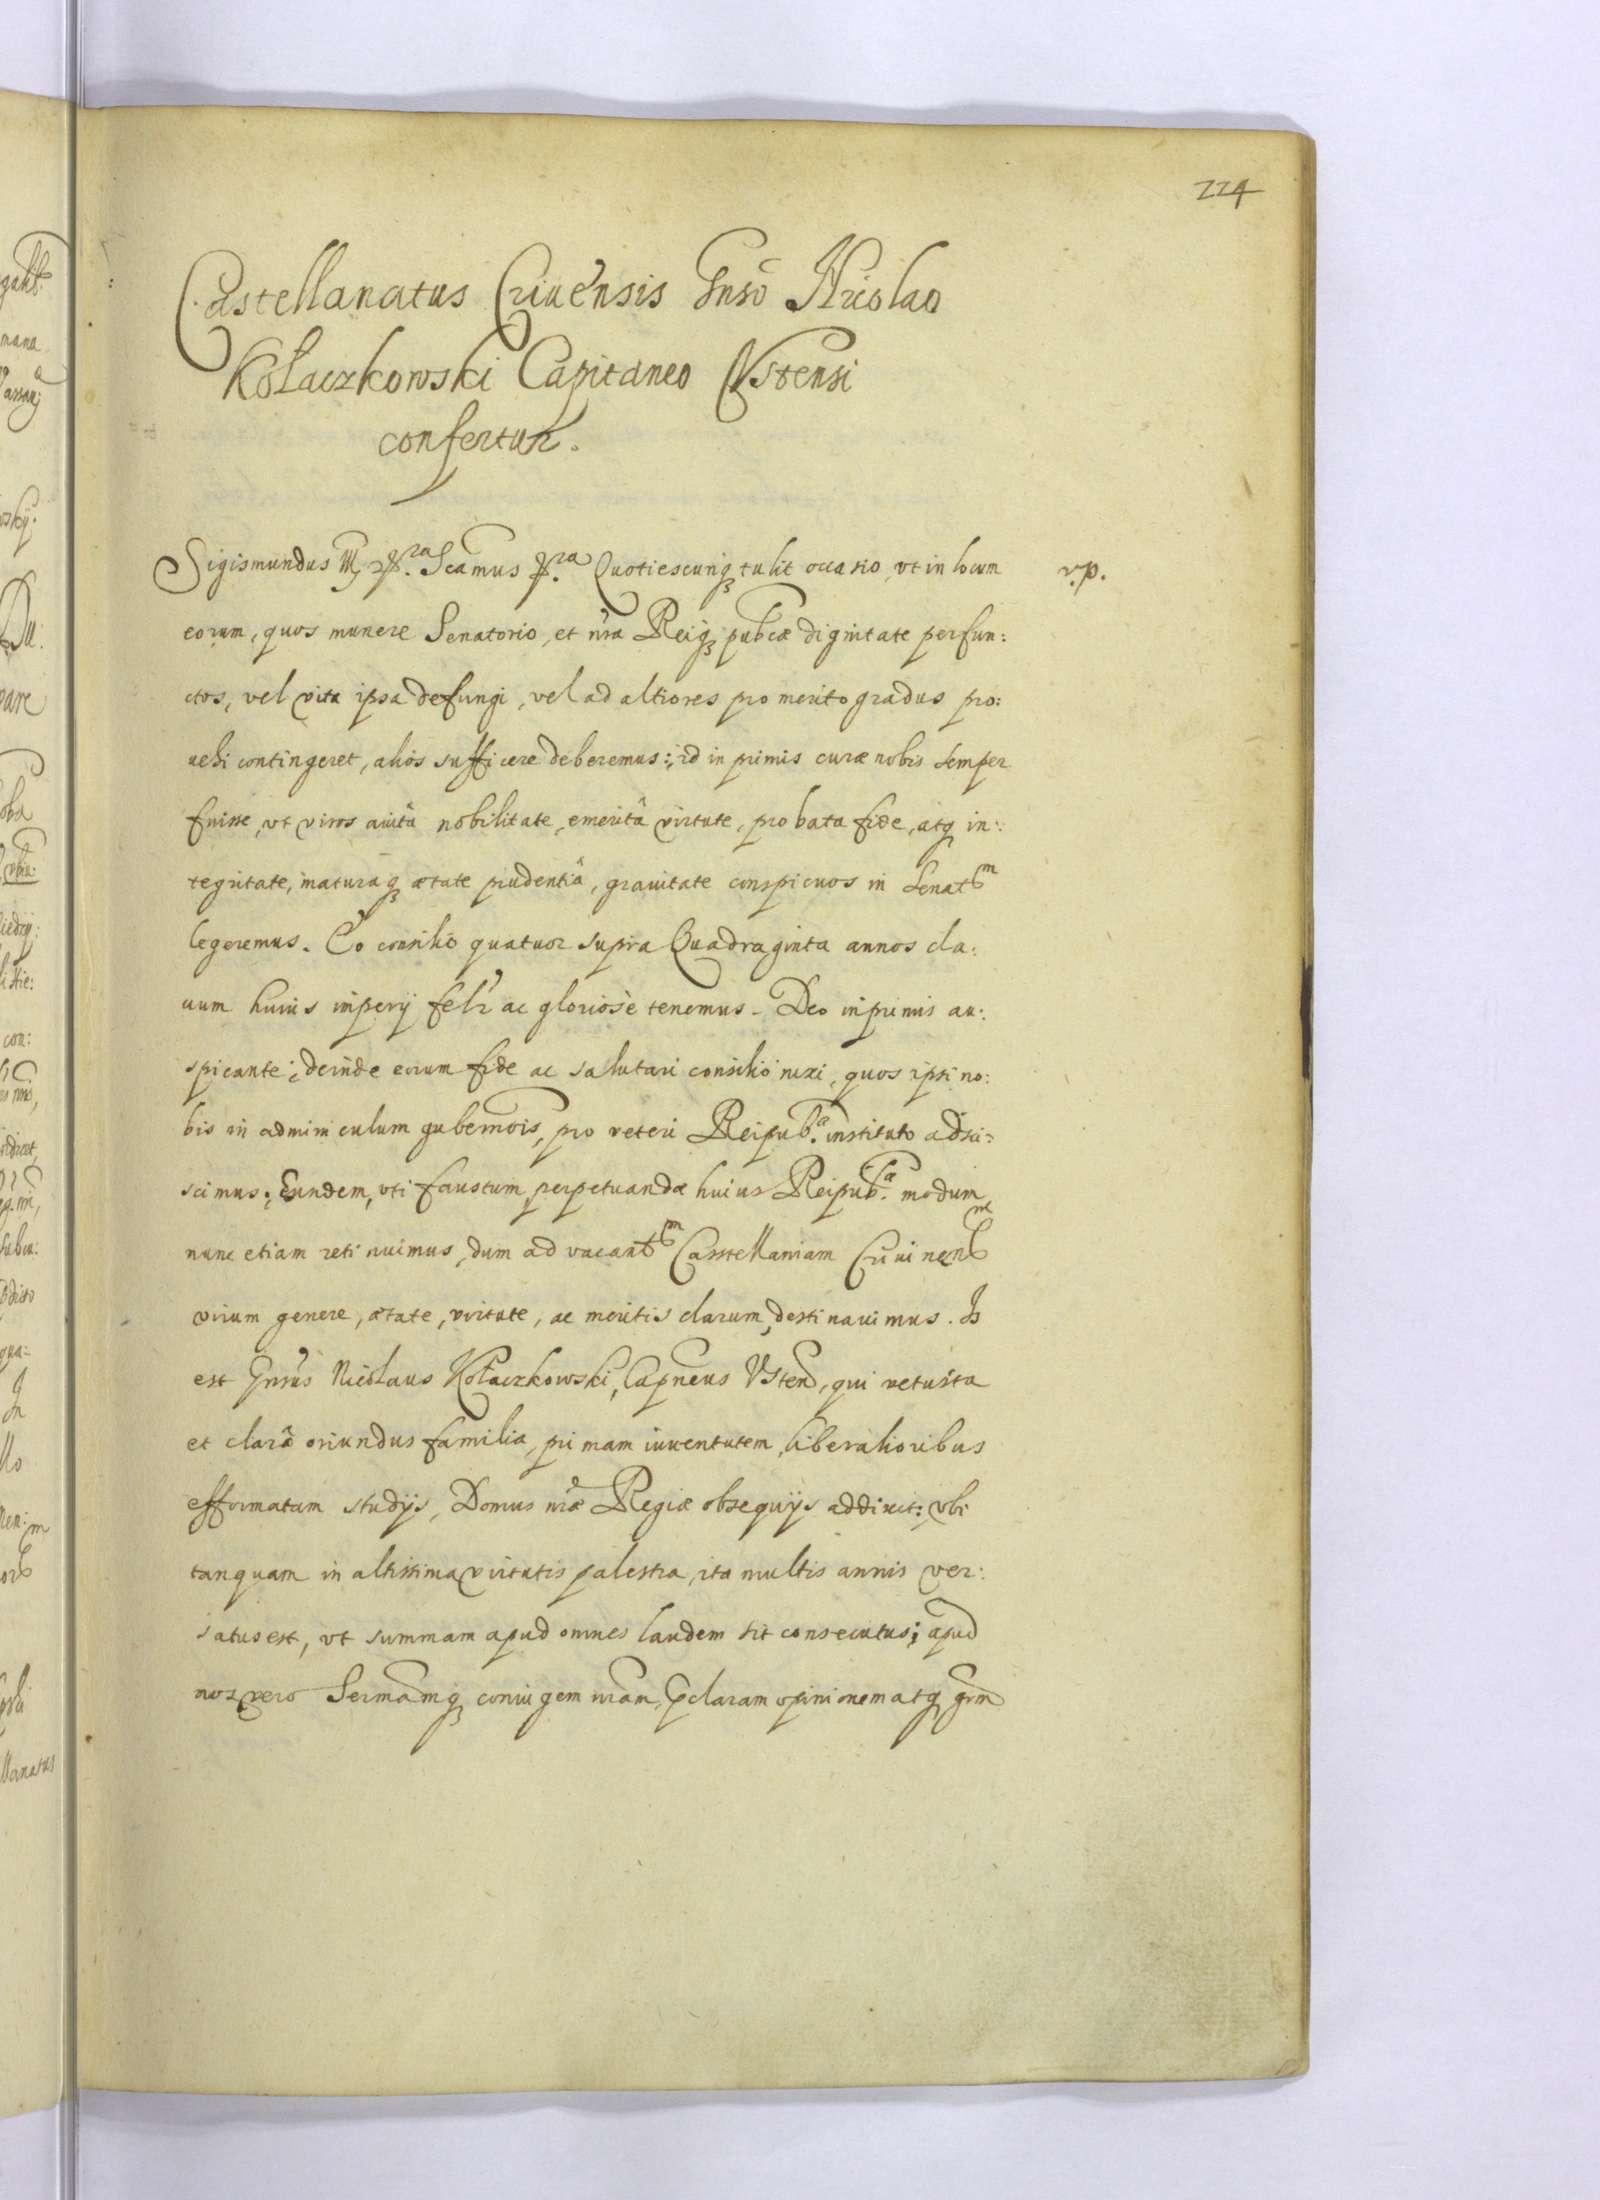 224
Castellanatus Criuensis Gnso Nicolao
Kołaczkowski Capitaneo Vstensi
confertur.
Sigismundus III etc. Scamus etc. Quotiescunq tulit occasio, vt in locum
v.p.
eorum, quos munere Senatorio, et nra Reiq pubcæ dignitate perfun:
ctos, vel vita ipsa defungi, vel ad altiores pro merito gradus pro:
uehi contingeret, alios sufficere deberemus: id in primis curæ nobis semper
fuisse, vt viros auitâ nobilitate, emeritâ virtute, probata fide, atq in:
tegritate, maturaq ætate prudentiâ, grauitate conspicuos in Senatm
legeremus. Eo consilio quatuor supra Quadraginta annos cla:
uum huius imperij felr ac gloriosè tenemus. Deo inprimis au:
spicante; deinde eorum fide ac salutari consilio nixi, quos ipsi no:
bis in adminiculum gubernõis, pro veteri Reipub.cæ instituto adsci:
scimus; Eundem, vti faustum perpetuandæ huius Reipub.cæ modum,
nunc etiam retinuimus, dum ad vacantm Castellaniam Criuinenm
virum genere, ætate, virtute, ac meritis clarum, destinauimus. Is
est Gnsus Nicolaus Kołaczkowski, Capneus Vsten, qui vetusta
et clarâ oriundus familia, primam iuuentutem, liberalioribus
efformatam studijs, Domus nræ Regiæ obsequijs addixit: vbi
tanquam in altissima virtutis palestra, ita multis annis ver:
satus est, vt summam apud omnes laudem sit consecutus; apud
nos vero Sermamq coniugem nram, pclaram opinionem atq grm